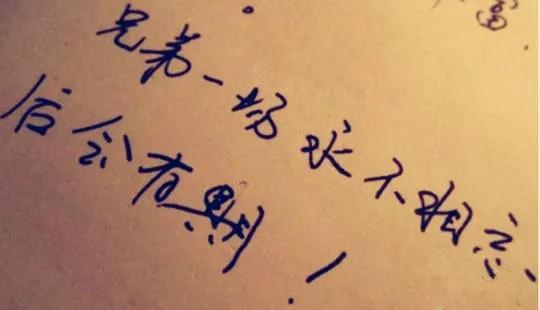 兄弟一场永不相忘、
后会有期！